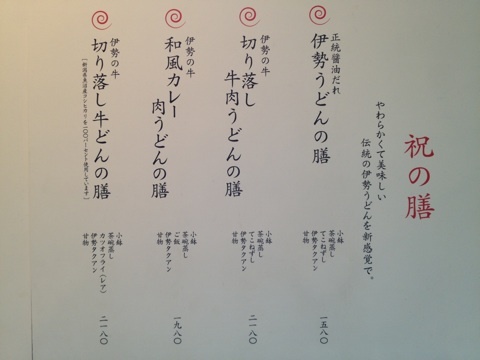 祝の膳
やわらかくて美味しい
伝統の伊勢うどんを新感覚で。
正統醤油だれ
伊勢うどんの膳
小鉢
茶碗蒸し
てこねずし
伊勢タクアン
甘物
一五八〇
伊勢の牛
切り落し
牛肉うどんの膳
小鉢
茶碗蒸し
てこねずし
伊勢タクアン
甘物
二一八〇
伊勢の牛
和風カレー
肉うどんの膳
小鉢
茶碗蒸し
ご飯
伊勢タクアン
甘物
一九八〇
伊勢の牛
切り落し牛どんの膳
(新潟県魚沼産コシヒカリを一〇〇パーセント使用しています)
小鉢
茶碗蒸し
カツオフライ(レア)
伊勢タクアン
甘物
二一八〇